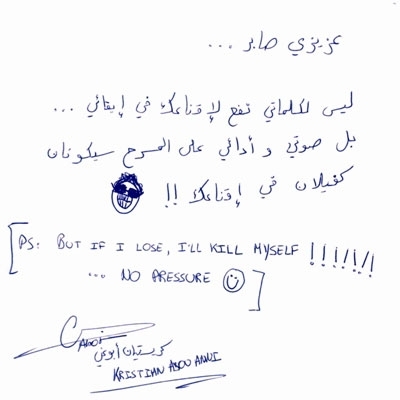 عزيزي صابر ...
ليس لكلماتي نفع لإقناعك في إبقائي ...
بل صوتي و أدائي على المسرح سيكونان
كفيلان في إقناعك !!
[PS: BUT IF I LOSE, I'LL KILL MYSELF !!!!!!!
... NO PRESSURE ☺]
كريستيان أبو عني
KRISTIAN ABOU ANNI